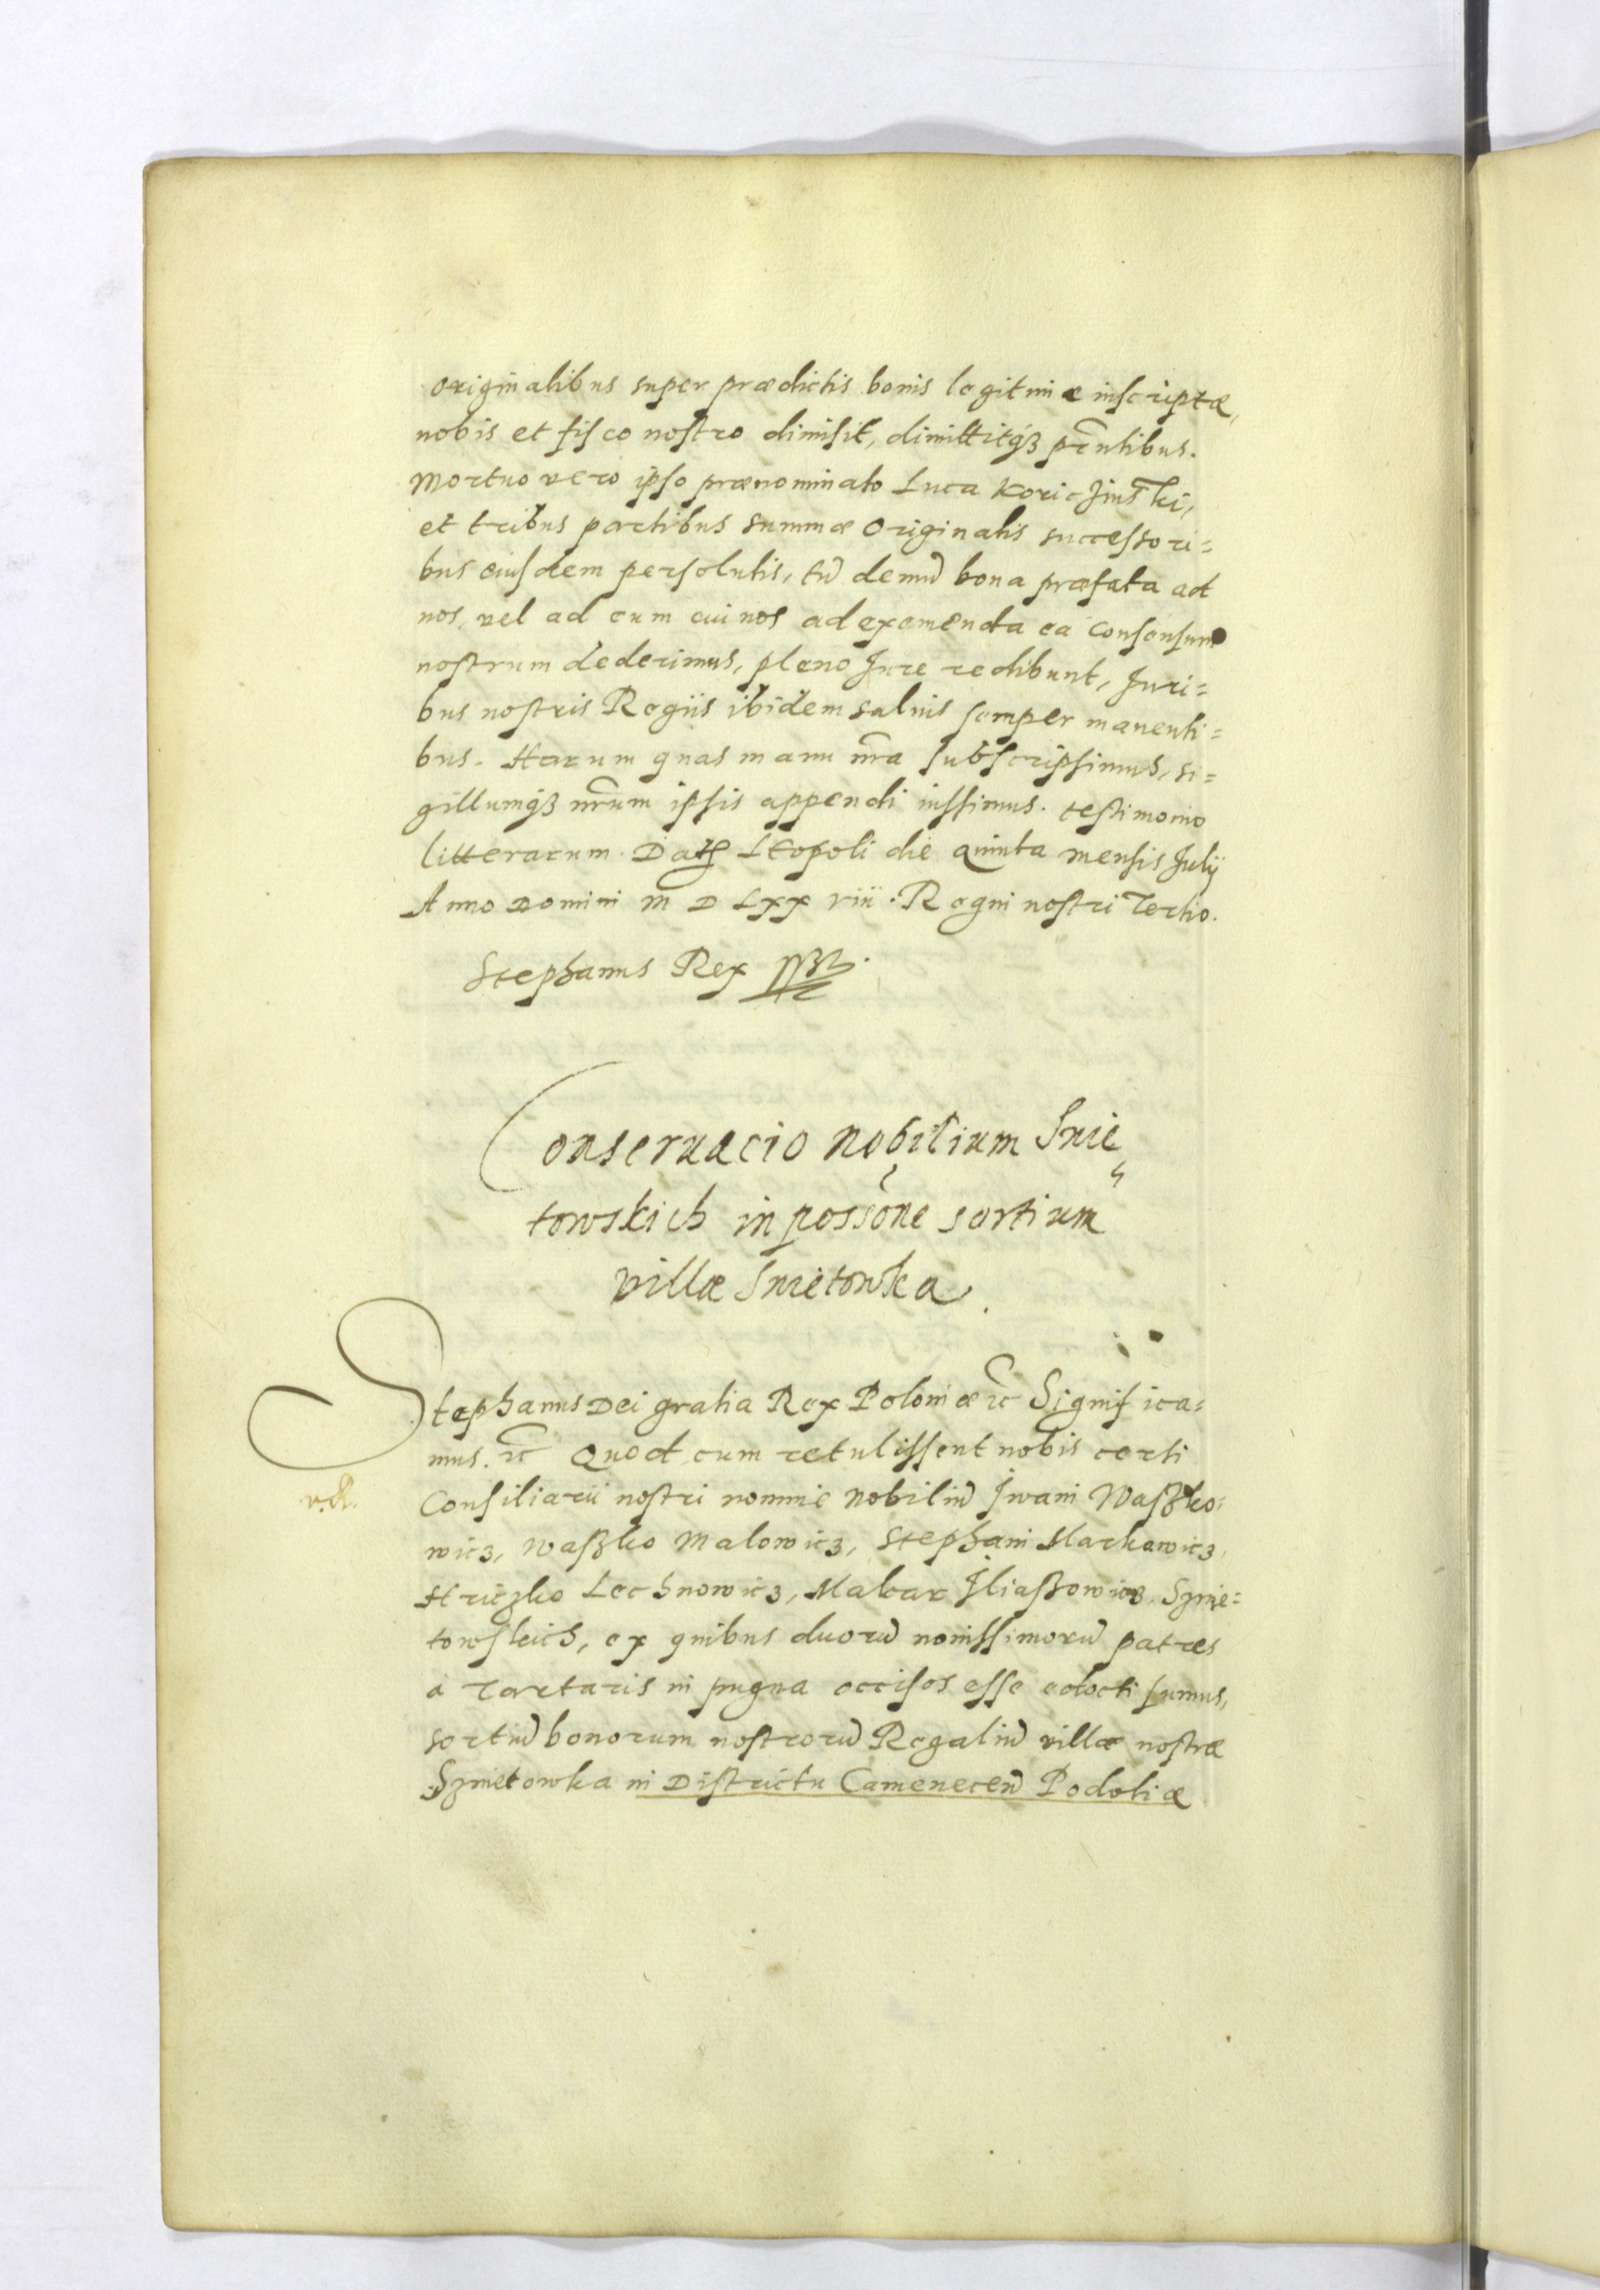 originalibus super prædictis bonis legitimæ inscriptæ,
nobis et fisco nostro dimisit, dimittitqȝ pr̃ntibus.
Mortuo vero ipso prænominato Luca Koriczinski,
et tribus partibus summæ originalis successori=
bus eiusdem persolutis, tũ demũ bona præfata ad
nos, vel ad eum cui nos ad exemenda ea consensum
nostrum dederimus, pleno Jure redibunt, Juri=
bus nostris Regiis ibidem saluis semper manenti=
bus. Harum quas manu nr̃a subscripsimus, si=
gillumqȝ nr̃um ipsis appendi iussimus. testimonio
litterarum. Dat Leopoli die quinta mensis Julij
Anno Domini M D LXX viii. Regni nostri Tertio.
Stephanus Rex
Conseruacio nobilium Snie
towskich in possõne sortium
villæ Snietowka.
Stephanus Dei gratia Rex Poloniæ ꝛc̃ Significa=
mus. ꝛc̃ Quod cum retulissent nobis certi
Consiliarii nostri nomine Nobiliũ Iwani Waszko=
wicz, Waszko Malowicz, Stephani Markowicz,
Hriczko Lechnowicz, Makar Iliaszowicz, Sznie=
towskich, ex quibus duorũ nouissimorũ patres
à Tartaris in pugna occisos esse edocti sumus,
sortiũ bonorum nostrorũ Regaliũ villæ nostræ
Sznietowka in Districtu Camenecen̄ Podoliæ